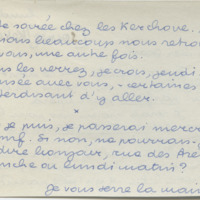 de soirée chez les Kerchove.
ions beaucoup vous retro
vous, une autre fois.
us les verrez, je crois, jeudi
mée avec vous, certaines
terdisant d'y aller.
*
je puis, je passerai mercr
Si non, ne pourrans-
dire bonjour, rue des
nche ou lundi matin?
Je vous serre la main